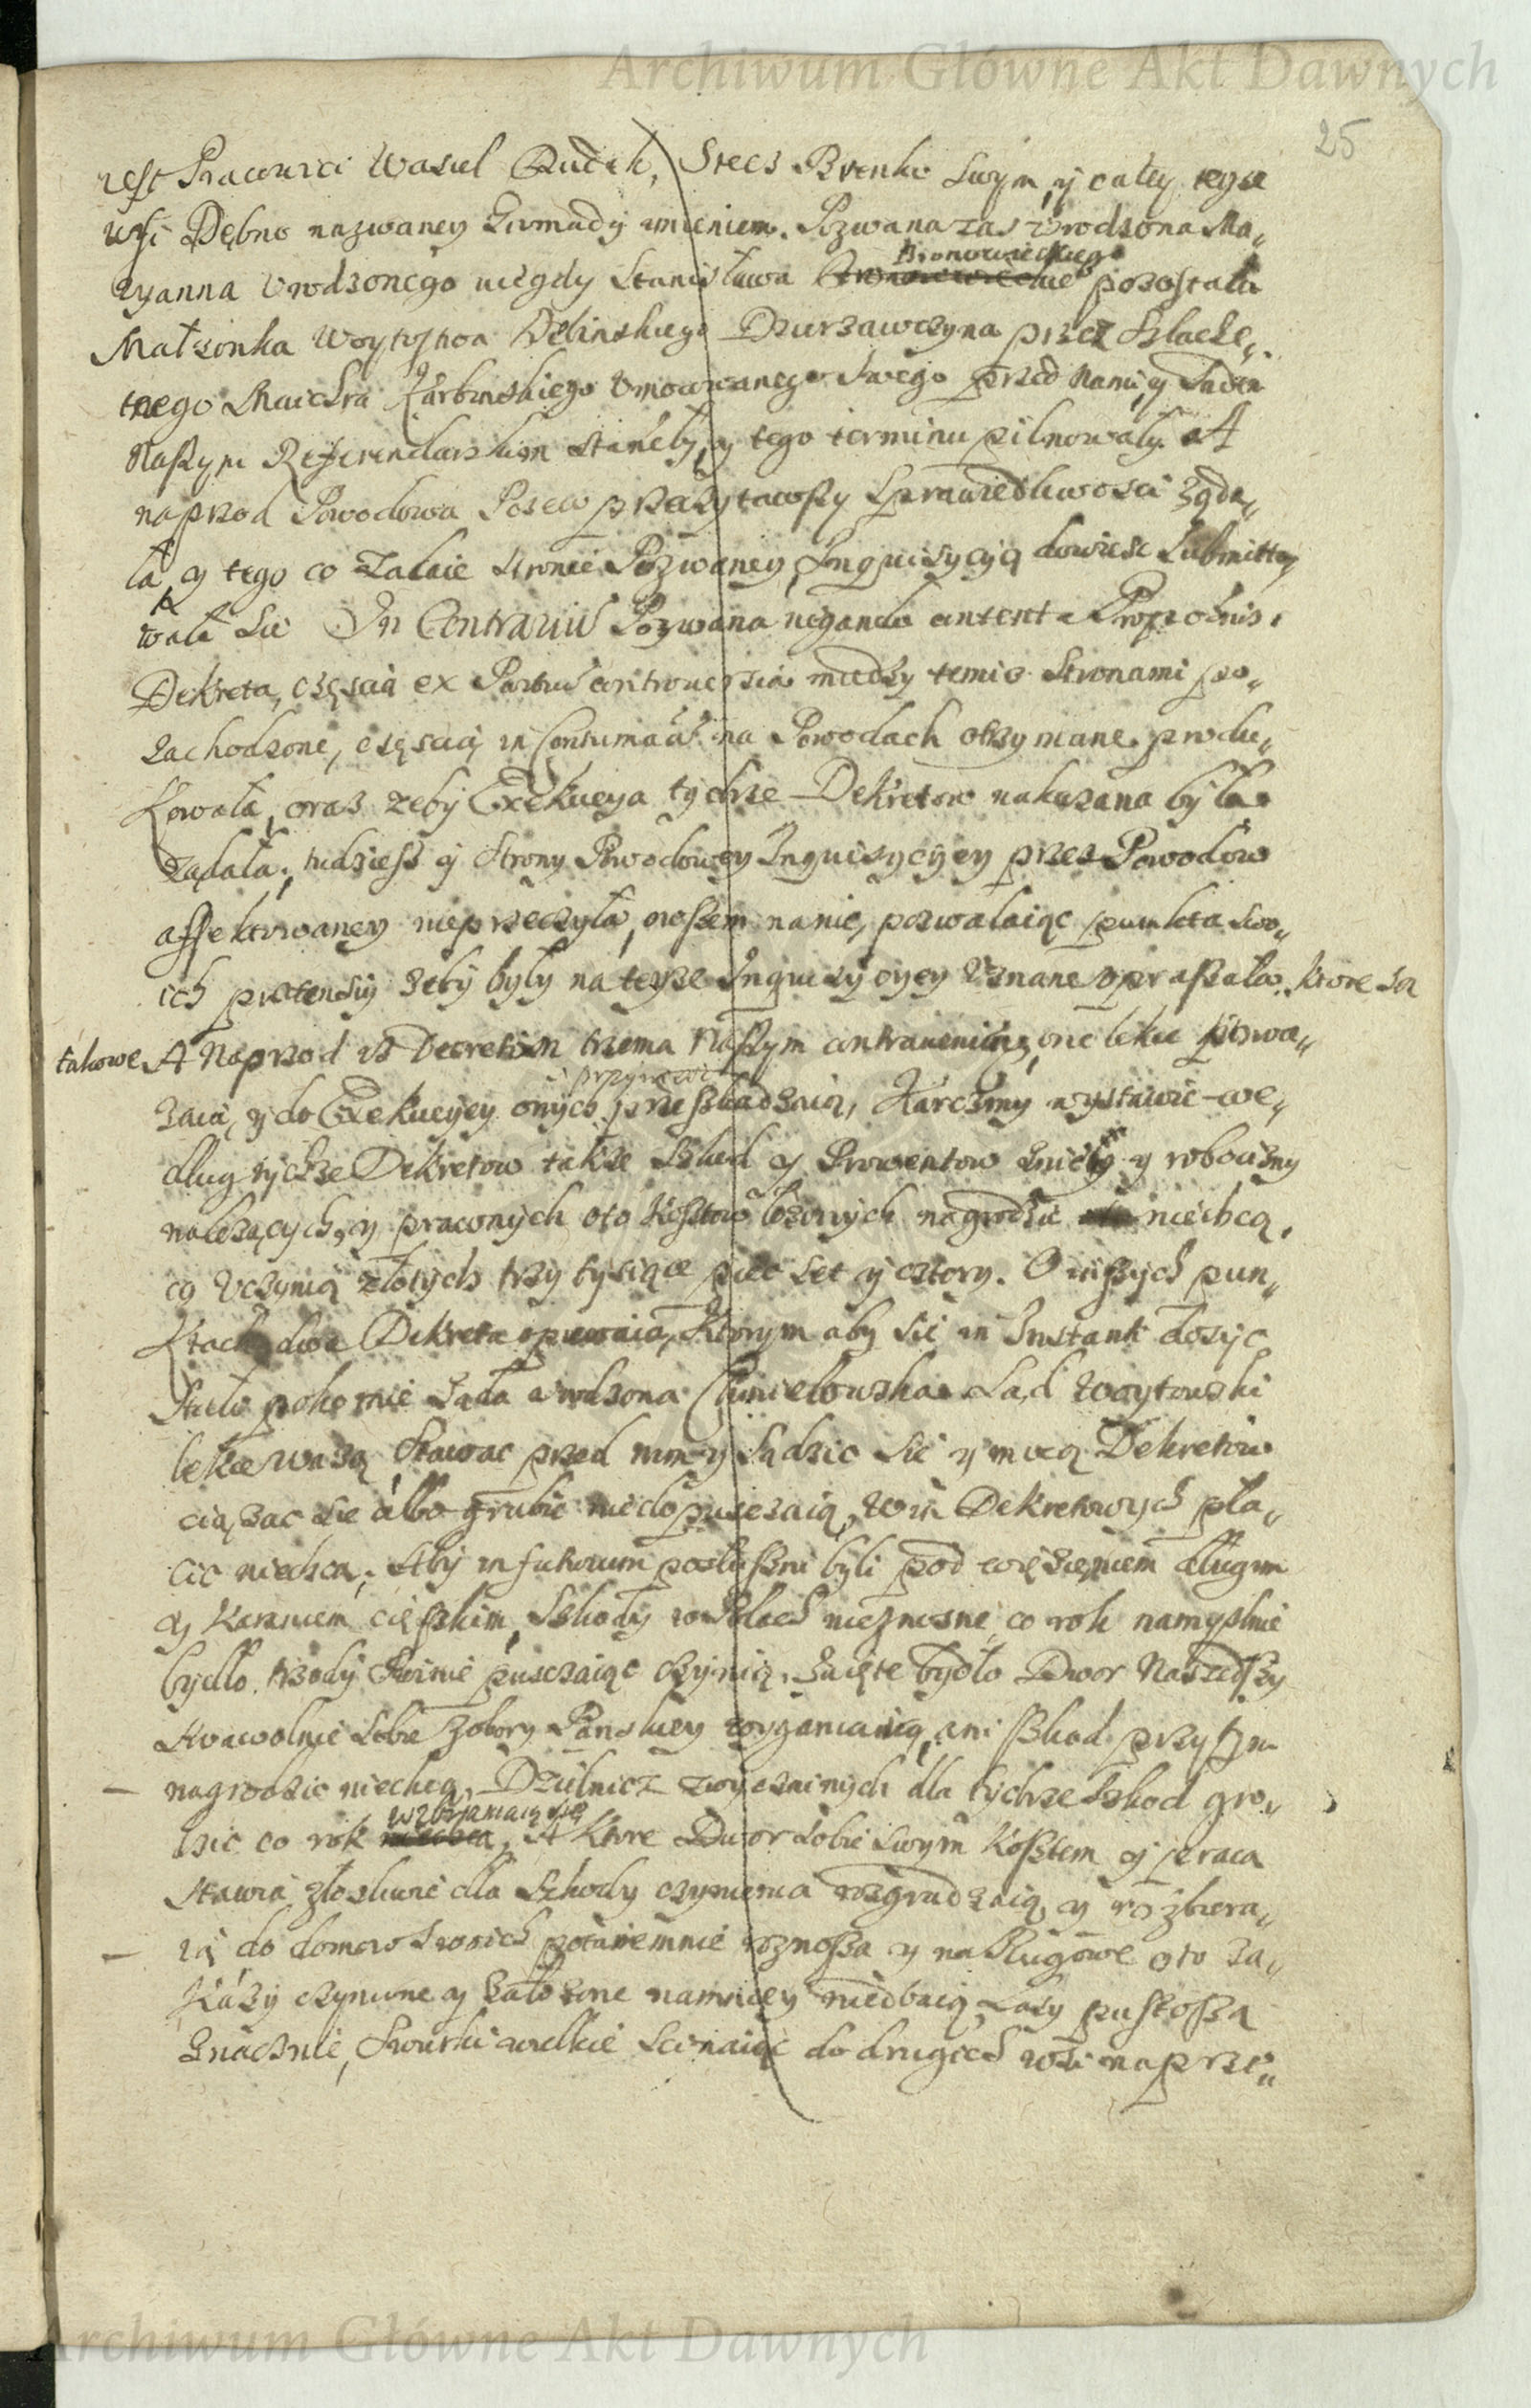 Archiwum Główne Akt Dawnych
25
Pracowici Wasiel Rudek, Stecz Brenko swym, y całey teyże
wsi Dębno nazwaney Gromady imieniem. Pozwana zas Vrodzona Ma„
ryanna Vrodzonego niegdy Stanisława Bronowickiego pozostała
Małżonka Woytostwa Debinskiego Dzierzawczyna przez Szlache„
tnego Macieia Karbinskiego Vmocowanego Swego przed Nami, y Sądem
Naszym Referendarskim staneły, y tego terminu pilnowały. A
naprzod Powodowa Pozew przeczytawszy Sprawiedliwości żąda„
ła, y tego co żałuie stronie Pozwaney, Inquisycyą dowieść submitto„
wała się In Contrariũ Pozwana negando intenta Propositis.
Dekreta, częścią ex Partiũ controuersia między temiż Stronami po„
zachodzone, częścią in Contumaciã na Powodach otrzymane produ„
kowała, oraz żeby Exekucya tychże Dekretow nakazana była
żądała; tudziesz y strony Powodowey Inquisycyey przez Powodow
affektowaney nieprzeczyła, owszem na nię pozwalaiąc punkta swo„
ich pretensiy żeby były na teyże Inquisycyey Vznane vpraszała. ktore są
takowe A Naprzod iż Decretom trzema Naszym contraueniuią, one lekce powa„
żaią, y do Exekucyey onych przeszkadzaią, Karczmy wystawić we„
dług tychże Dekretow także szkod y Prowentow zniey y robocizny
należących, y prawnych oto kosztow łożonych nagrodzić niechcą,
co vczynią złotych trzy tysiące pięć set y cztery. O inszych pun„
ktach dwa Dekreta opiewaią, Ktorym aby się in Instanti dosyć
stało pokornie żąda vrodzona Chmielowska. Sąd woytowski
lekce ważą Stawac przed nim y sądzic się y mocą Dekretow
ciążac się albo grabic niedopuszczaią, Win Dekretowych pła„
cic niechcą; Aby in futurum posłuszni byli pod więzieniem długim
y karaniem cięszkim, Szkody w Polach nieznosne co rok namyslnie
bydło trzody swinie puszczaiąc czynią. Zaięte bydło Dwor Naszedszy
swawolnie sobie z obory Panskiey wyganiaią, ani szkod przyszn
— nagrodzic niechcą, Dzielnic zwyczainych dla tychże szkod gro„
dzic co rok wzbraniaią się, A ktore Dwor sobie swym kosztem y praca
stawia złosliwie dla szkody czynienia rozgradzaią, y rozbiera„
— ią do domow swoich potaiemnie roznoszą y na Pługowe oto za„
kazy czynione y założone namniey niedbaią Lasy pustoszą
znacznie, Swirki wielkie scinaiąc do drugich wsi na prze„
Archiwum Główne Akt Dawnych